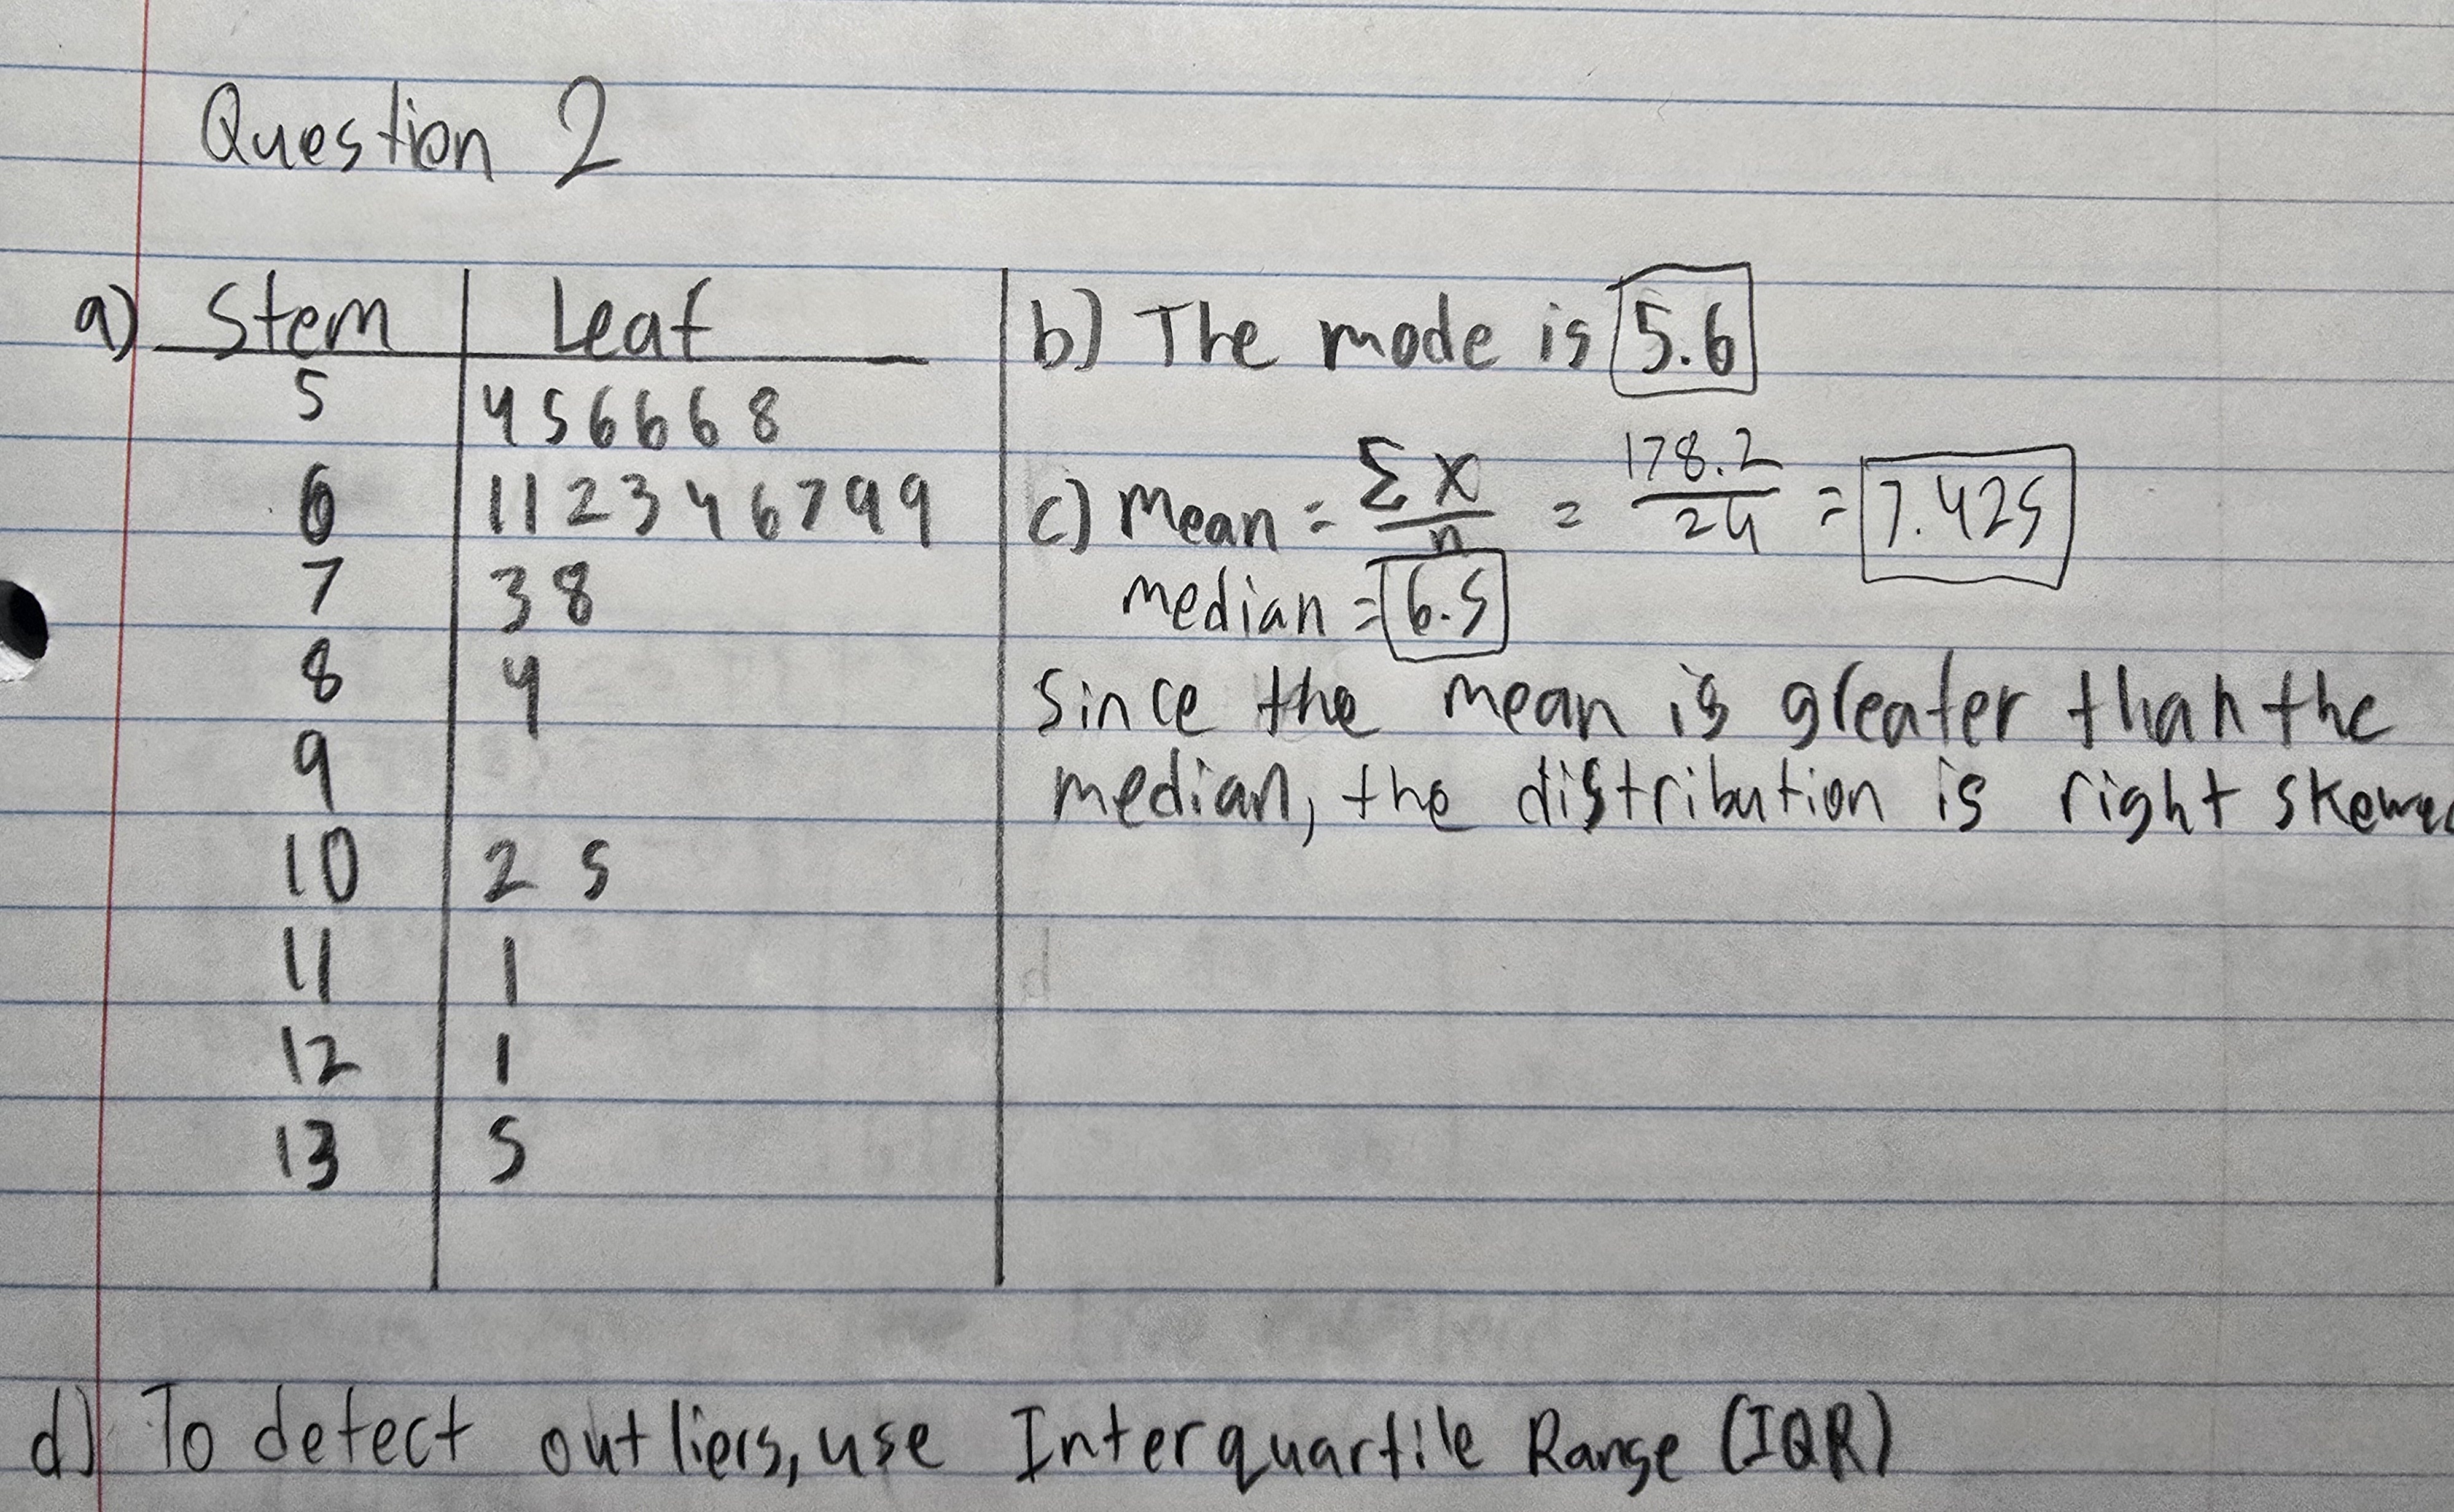 Question 2
a) Stem | Leaf
5 | 4 5 6 6 6 8
6 | 1 1 2 3 4 6 7 9 9
7 | 3 8
8 | 4
9 |
10 | 2 5
11 | 1
12 | 1
13 | 5
b) The mode is 5.6
c) Mean = Σx/n = 178.2/24 = 7.425
median = 6.5
Since the mean is greater than the
median, the distribution is right skewed
d) To detect outliers, use Interquartile Range (IQR)